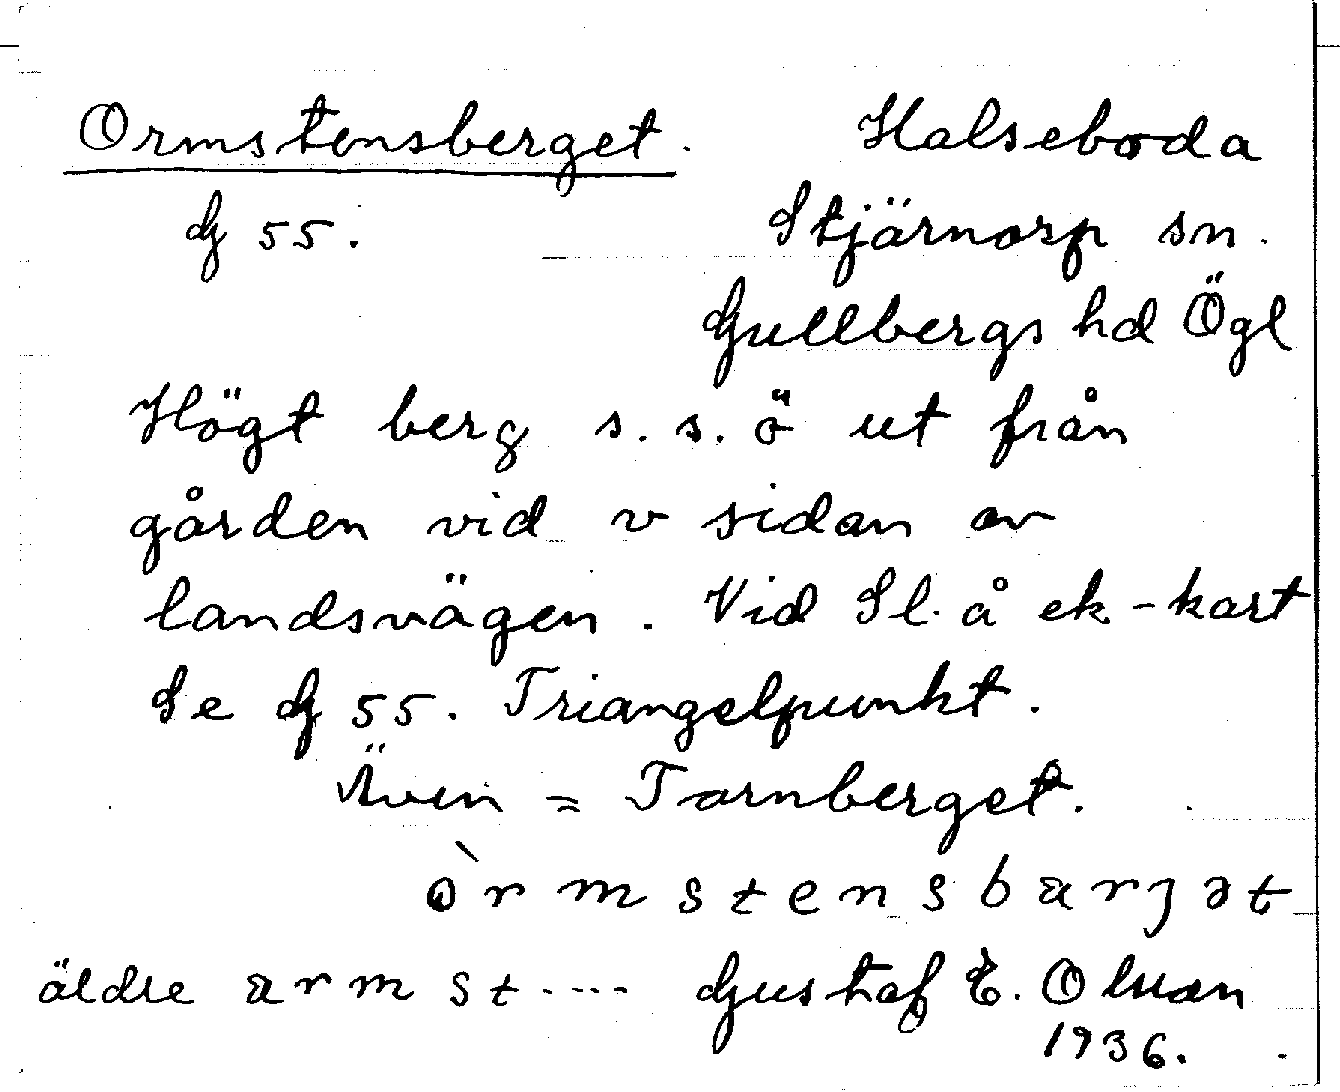 Ormstensberget. Halseboda
G 55. Stjärnorp sn.
Gullbergs hd Ögl
Högt berg s.s.ö ut från
gården vid v sidan av
landsvägen. Vid Sl. å ek-kart
Se G 55. Triangelpunkt.
Även = Tornberget.
òrmstensbärjət
äldre ärmst---- Gustaf E. Olsson
1936.